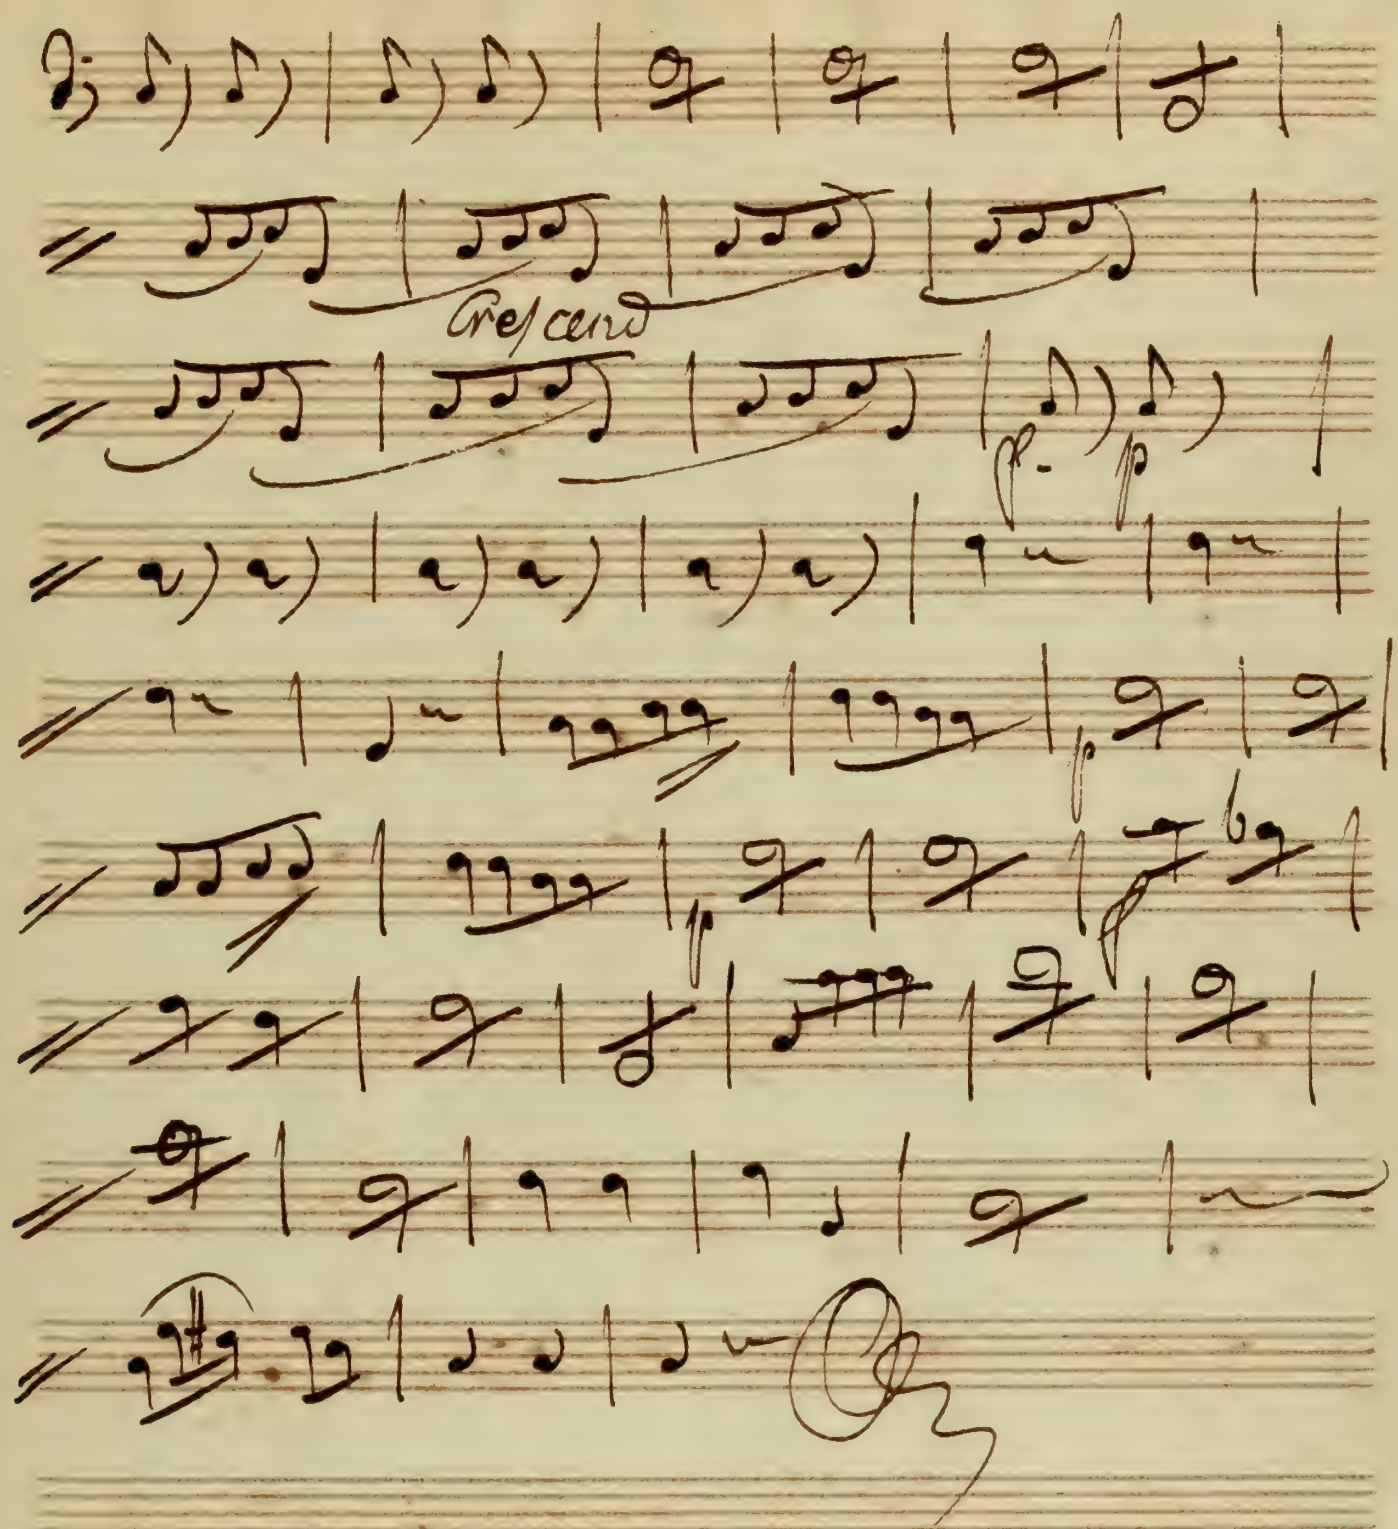 Crescend
p. p
p
p f